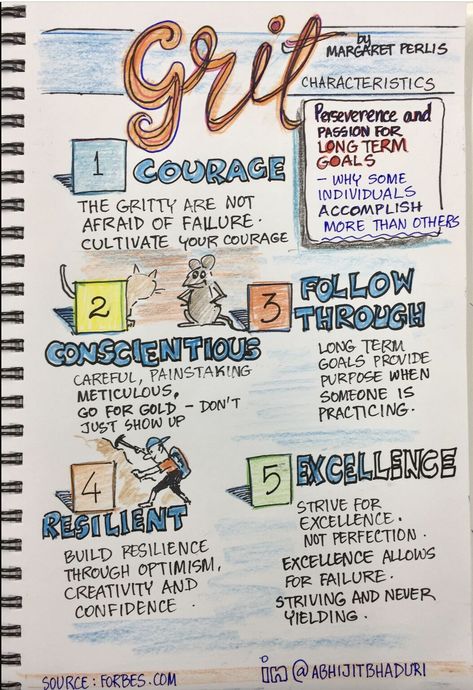 grit
by
MARGARET PERLIS
CHARACTERISTICS
Perseverence and
PASSION FOR
LONG TERM
GOALS
- WHY SOME
INDIVIDUALS
ACCOMPLISH
MORE THAN OTHERS
1 COURAGE
THE GRITTY ARE NOT
AFRAID OF FAILURE.
CULTIVATE YOUR COURAGE
2
CONSCIENTIOUS
CAREFUL, PAINSTAKING
METICULOUS,
GO FOR GOLD - DON'T
JUST SHOW UP
3 FOLLOW
THROUGH
LONG TERM
GOALS PROVIDE
PURPOSE WHEN
SOMEONE IS
PRACTICING.
4
RESILIENT
BUILD RESILIENCE
THROUGH OPTIMISM,
CREATIVITY AND
CONFIDENCE.
5 EXCELLENCE
STRIVE FOR
EXCELLENCE.
NOT PERFECTION.
EXCELLENCE ALLOWS
FOR FAILURE.
STRIVING AND NEVER
YIELDING.
SOURCE: FORBES.COM
in @ABHIJITBHADURI